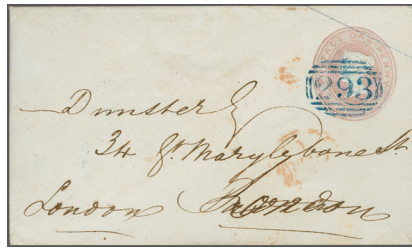 POSTAGE ONE PENNY
293
Dunster Esq
34 Gt. Marylybone St.
London